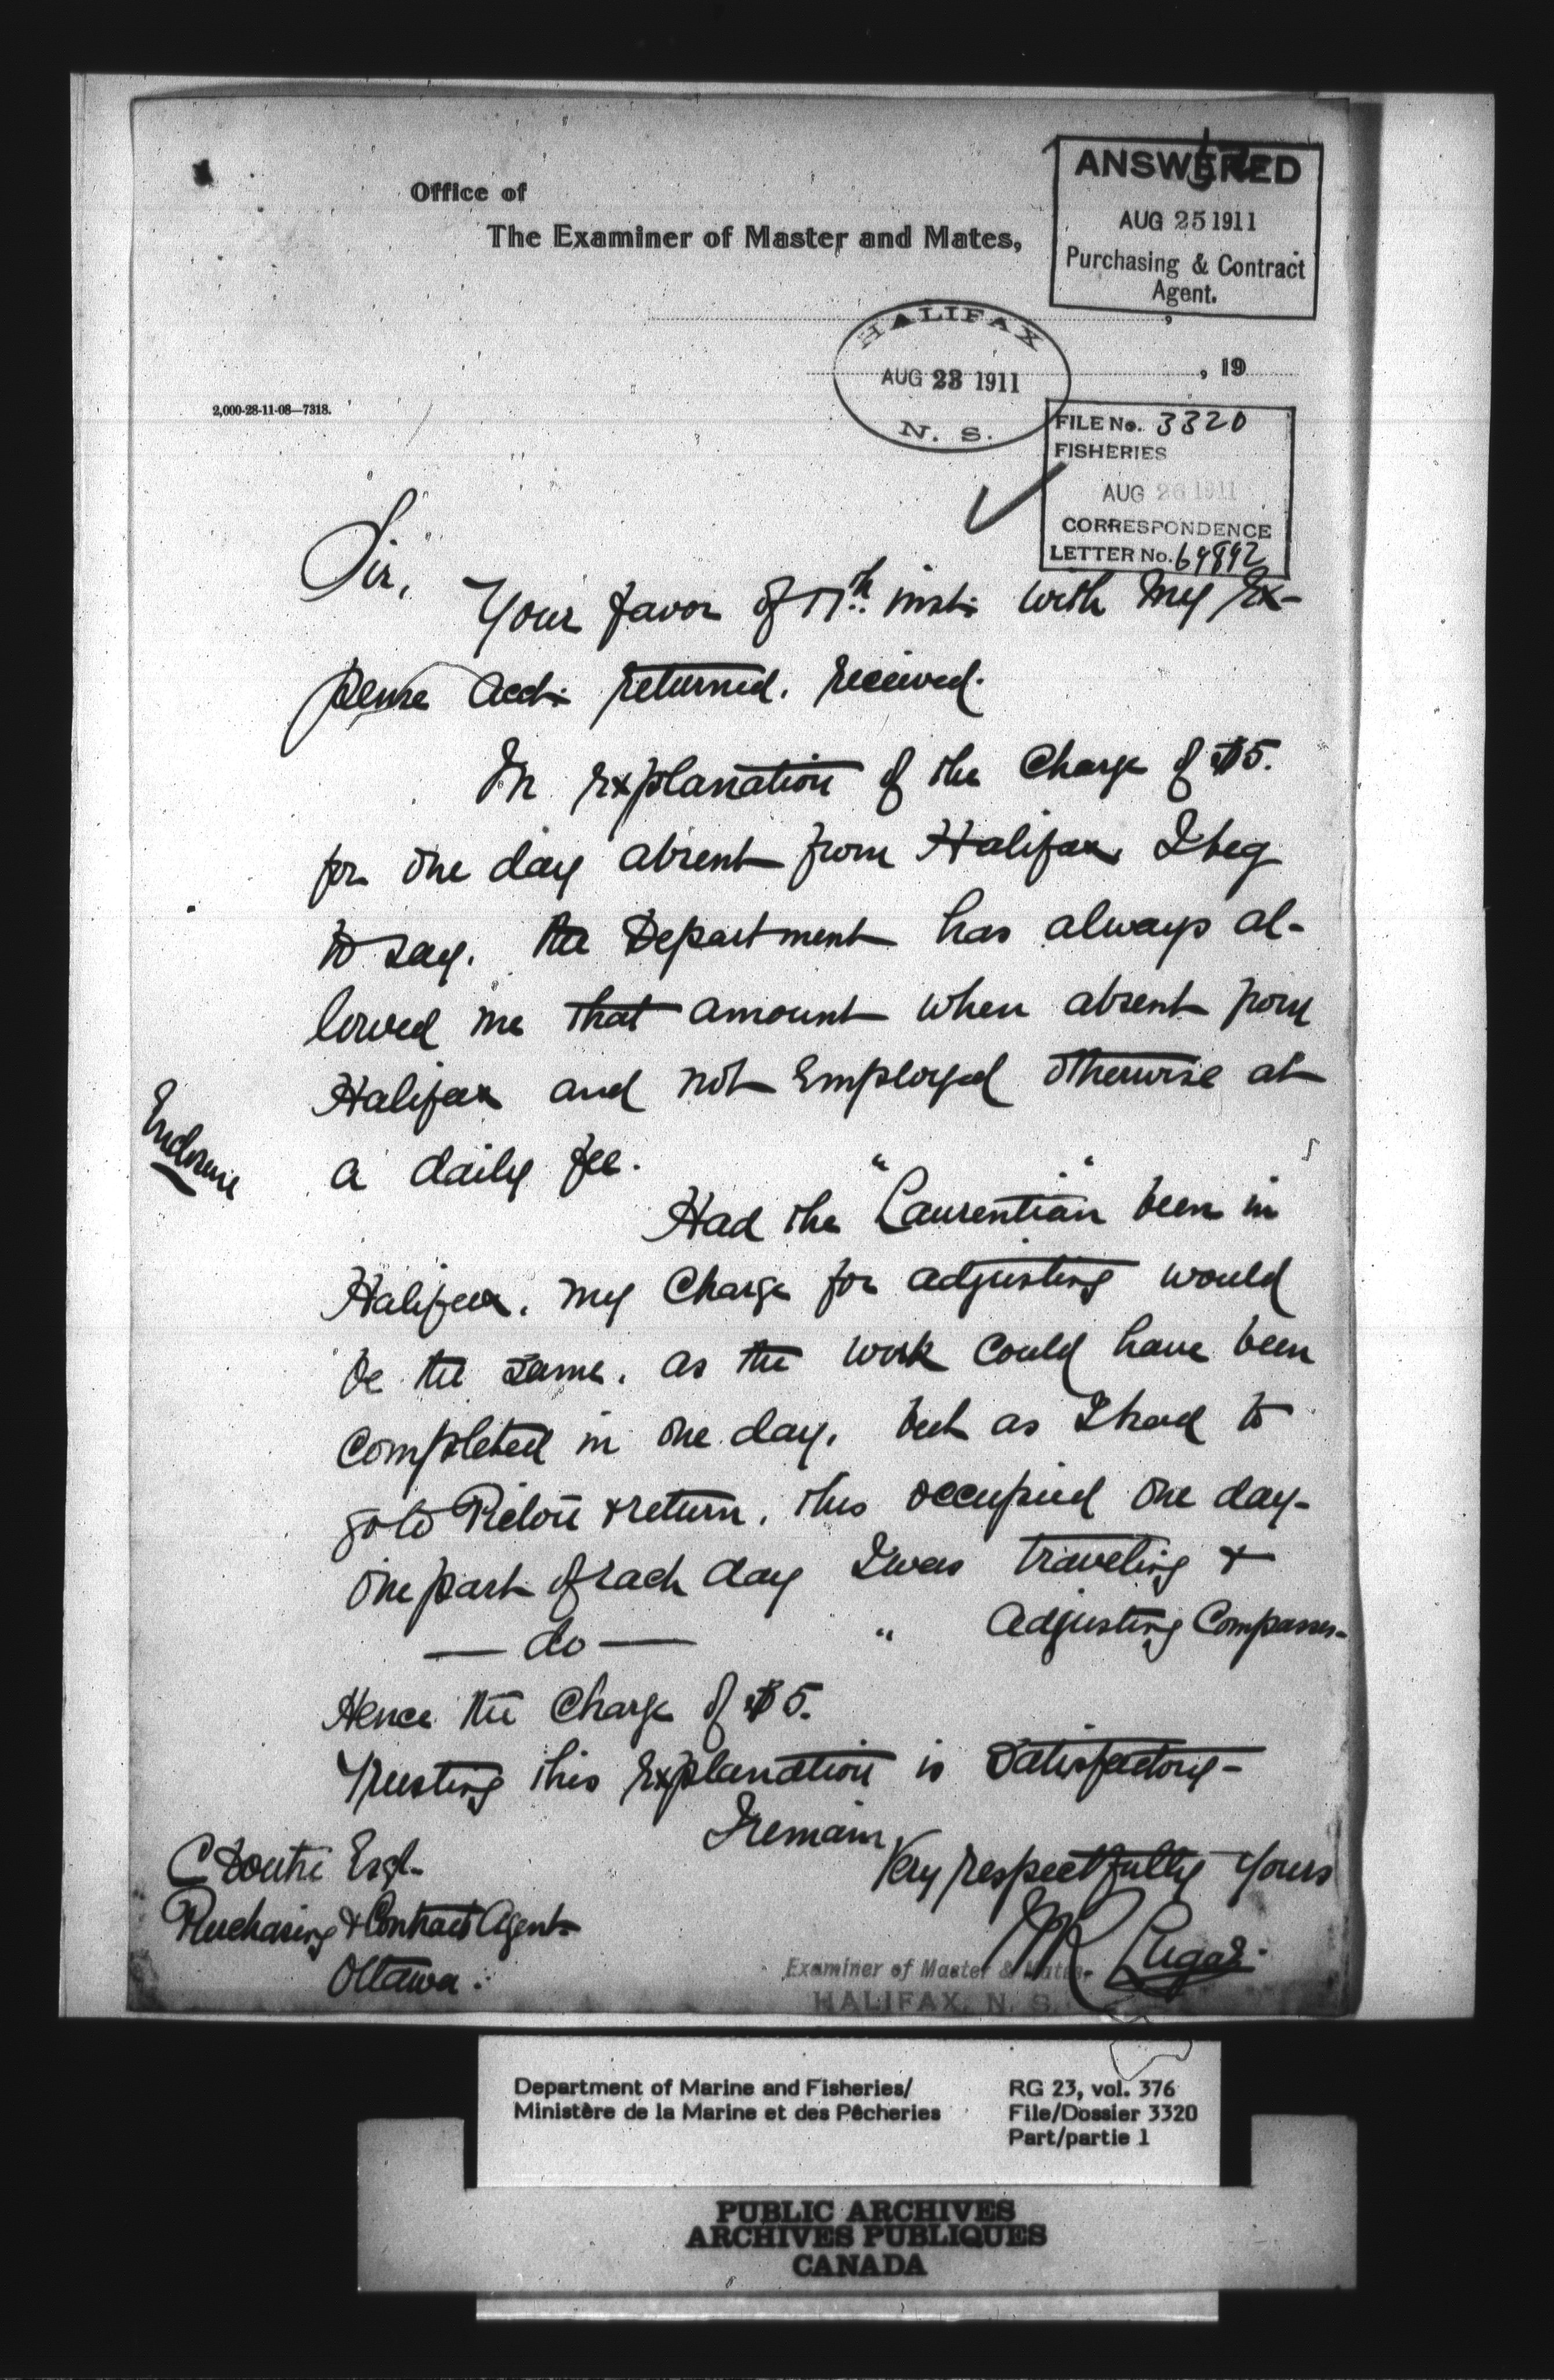 Office of
The Examiner of Master and Mates,
ANSWERED
AUG 25 1911
Purchasing & Contract
Agent.
HALIFAX
AUG 23 1911
N. S.
, 19
2,000-28-11-08—7318.
FILE No. 3320
FISHERIES
AUG 26 1911
CORRESPONDENCE
LETTER No. 69892
Sir,
Your favor of 17th inst. with my Ex-
pense Acct. returned. received.
In explanation of the Charge of $5.
for one day absent from Halifax, I beg
to say. the Department has always al-
lowed me that amount when absent from
Halifax and not Employed otherwise at
a daily fee.
Enclosure
Had the "Laurentian" been in
Halifax. my Charge for adjusting would
be the same. as the work could have been
Completed in one day. but as I had to
go to Pictou & return. this occupied one day-
One part of each day I was traveling &
— do — " Adjusting Compasses-
Hence the Charge of $5.
Trusting this Explanation is Satisfactory-
I remain
Very respectfully Yours
C Doutre Esq.
Purchasing & Contract Agent
Ottawa.
Examiner of Master & Mates.
HALIFAX, N. S.
Department of Marine and Fisheries/
Ministère de la Marine et des Pêcheries
RG 23, vol. 376
File/Dossier 3320
Part/partie 1
PUBLIC ARCHIVES
ARCHIVES PUBLIQUES
CANADA